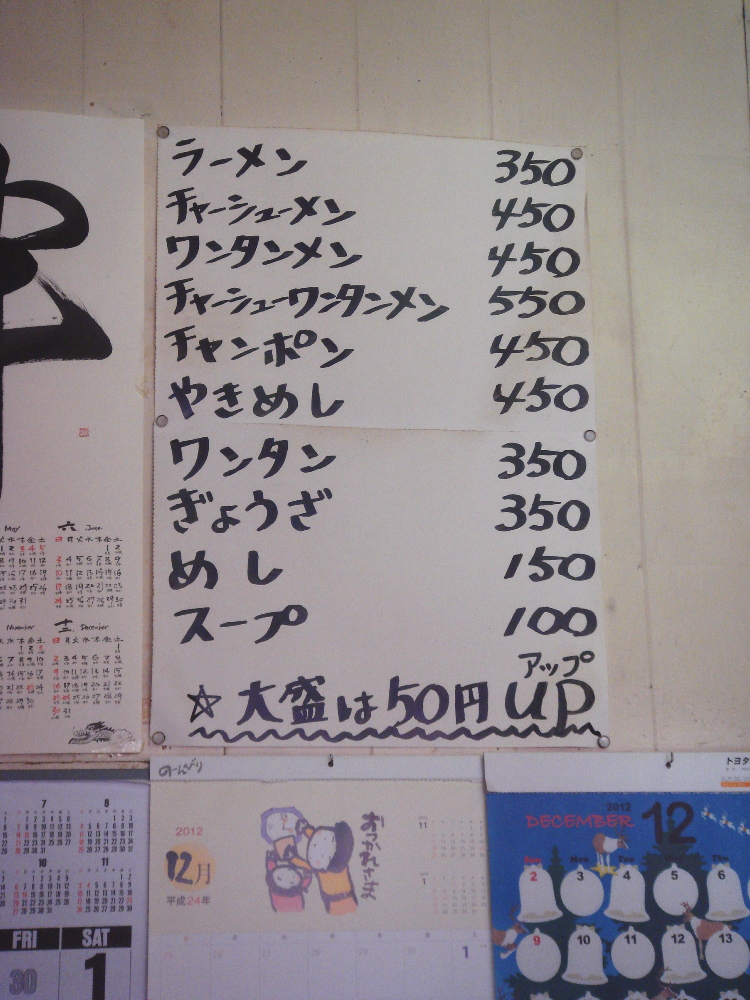 ラーメン 350
チャーシューメン 450
ワンタンメン 450
チャーシューワンタンメン 550
チャンポン 450
やきめし 450
ワンタン 350
ぎょうざ 350
めし 150
スープ 100
アップ
☆大盛は50円UP
May 六 June
November 十二 December
7 8
10 11
FRI SAT
30 1
のんびり
2012
12月
平成24年
おつかれさま
11
1
1
トヨタ
2012
DECEMBER 12
Sun Mon Tue Wed Thu
2 3 4 5 6
9 10 11 12 13